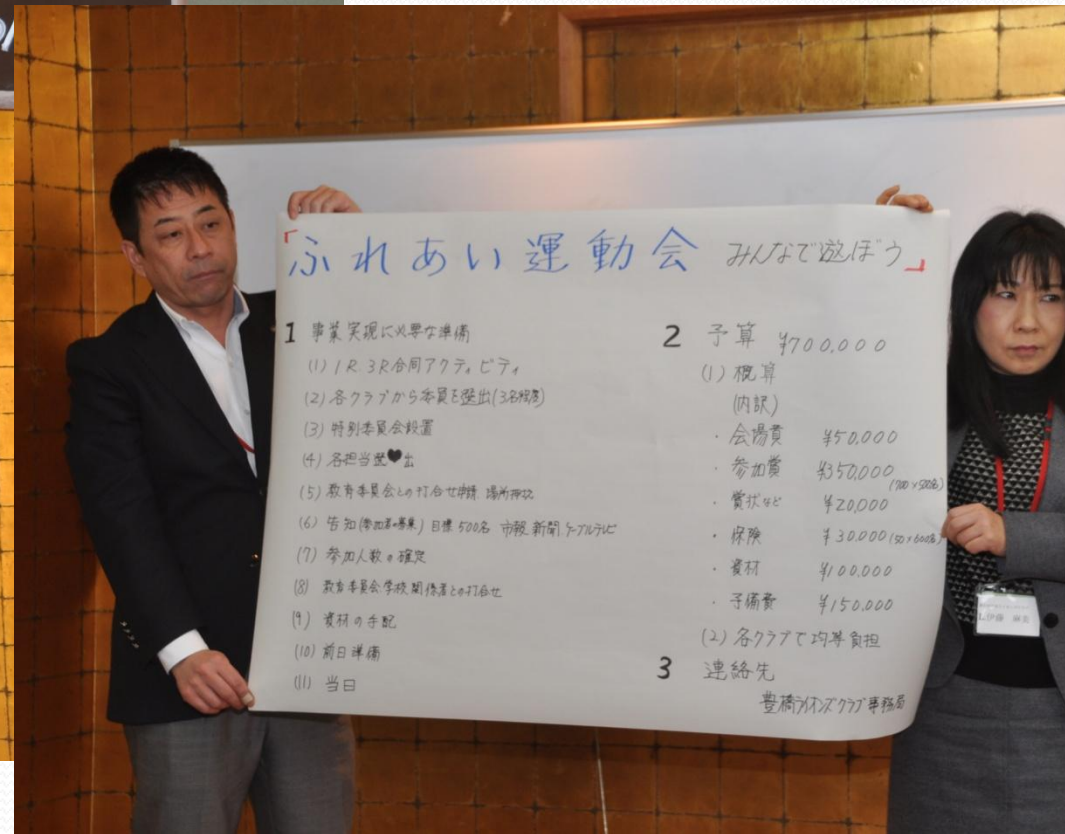 「ふれあい運動会 みんなで遊ぼう」
1 事業実現に必要な準備
(1) 1R.3R合同アクティビティ
(2) 各クラブから委員を選出(3名程度)
(3) 特別委員会設置
(4) 各担当選♥出
(5) 教育委員会との打合せ申請 場所
(6) 告知(参加者の募集) 目標500名 市報 新聞 ケーブルテレビ
(7) 参加人数の確定
(8) 教育委員会学校関係者との打合せ
(9) 資材の手配
(10) 前日準備
(11) 当日
2 予算 ¥700,000
(1) 概算
(内訳)
・会場費 ¥50,000
・参加賞 ¥350,000
(700×500名)
・賞状など ¥20,000
・保険 ¥30,000(50×600名)
・資材 ¥100,000
・予備費 ¥150,000
(2) 各クラブで均等負担
3 連絡先
豊橋ライオンズクラブ事務局
L.伊藤 麻美